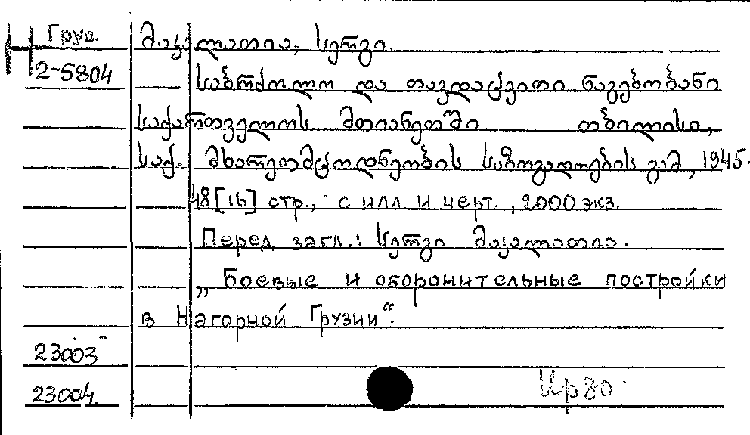 Груз.
2-5804
მაკალათია, სერგი
საბრძოლო და თავდაცვითი ნაგებობანი
საქართველოს მთიანეთში თბილისი,
საქ. მხარეთმცოდნეობის საზოგადოების გამ, 1945.
48 [16] стр., с илл. и черт., 2000 экз.
Перед загл.: სერგი მაკალათია.
„Боевые и оборонительные постройки
в Нагорной Грузии".
23003
23004.